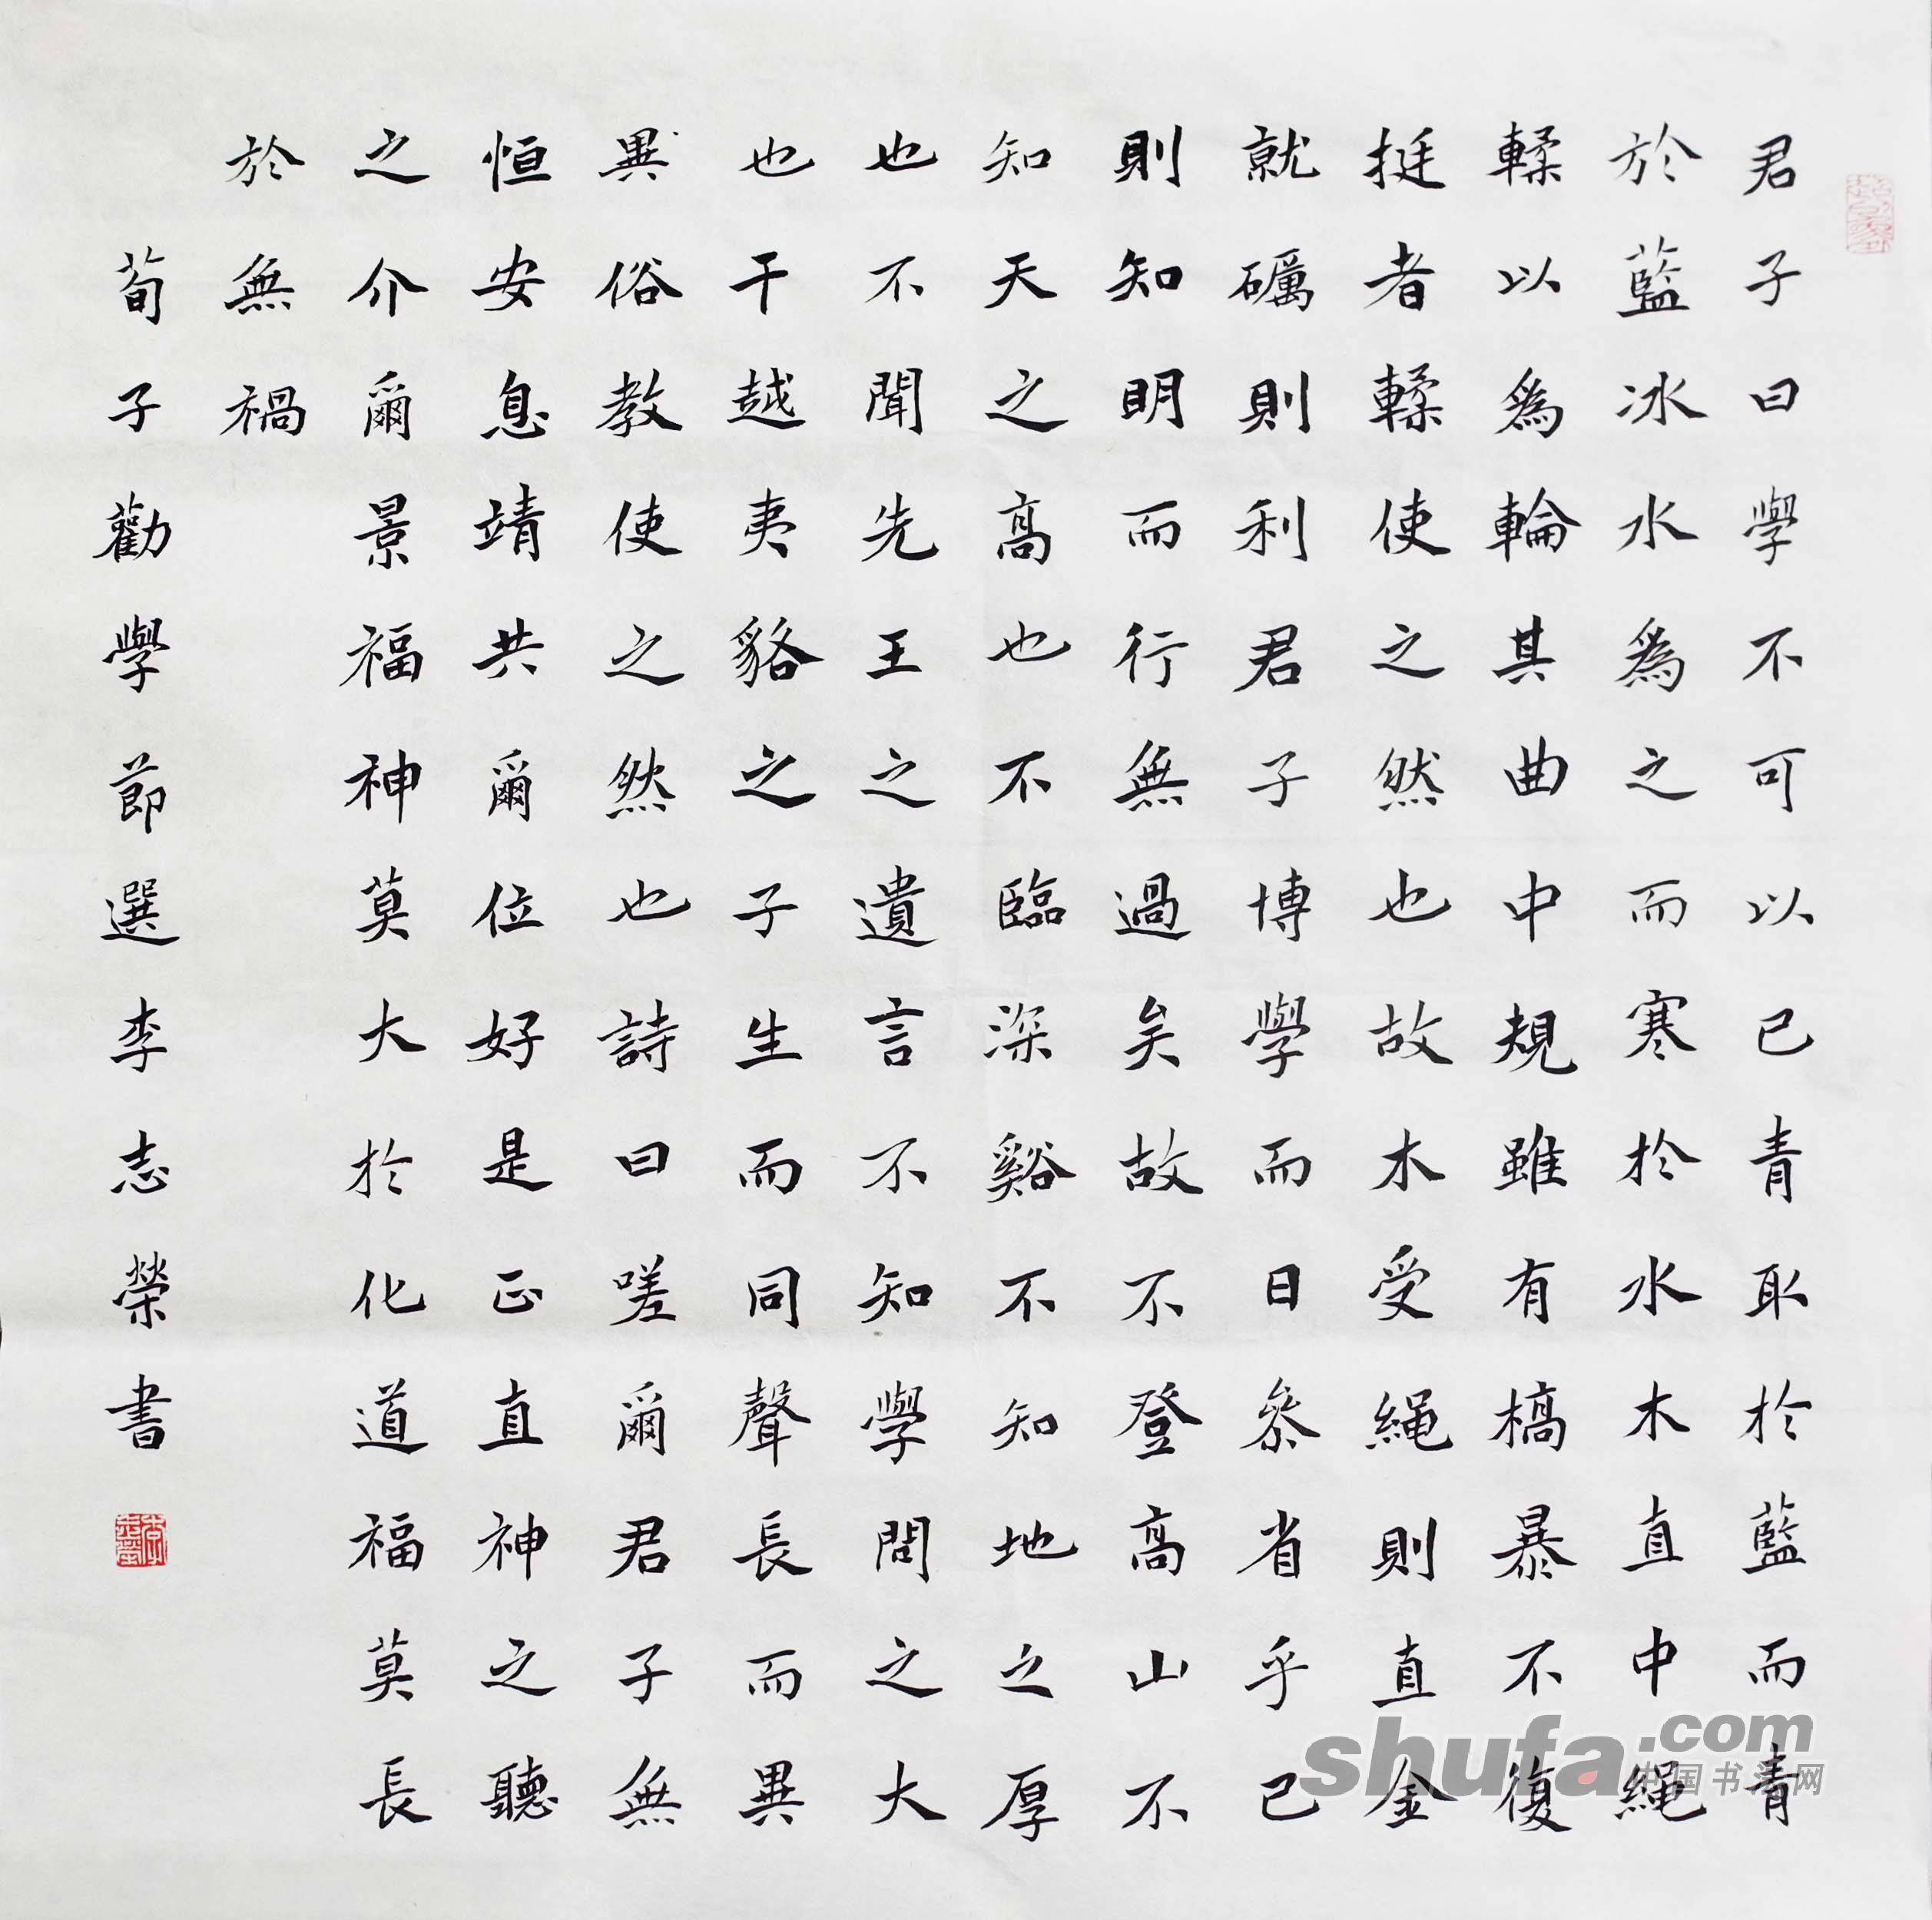 君子曰學不可以已青取於藍而青
於藍冰水為之而寒於水木直中繩
輮以為輪其曲中規雖有槁暴不復
挺者輮使之然也故木受繩則直金
就礪則利君子博學而日參省乎已
則知明而行無過矣故不登高山不
知天之高也不臨深谿不知地之厚
也不聞先王之遺言不知學問之大
也干越夷貉之子生而同聲長而異
異俗教使之然也詩曰嗟爾君子無
恒安息靖共爾位好是正直神之聽
之介爾景福神莫大於化道福莫長
於無禍
荀子勸學節選李志榮書
shufa.com
中国书法网